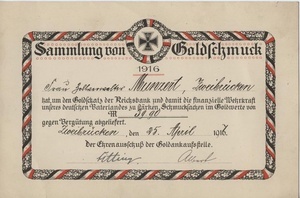 Sammlung von Goldschmuck
1916
Frau Zollverwalter Munzert, Zweibrücken
hat, um den Goldschatz der Reichsbank und damit die finanzielle Wehrkraft
unseres deutschen Vaterlandes zu stärken, Schmucksachen im Goldwerte von
M. 39.90
gegen Vergütung abgeliefert.
Zweibrücken, den 25. April 1916.
Der Ehrenausschuß der Goldankaufsstelle.